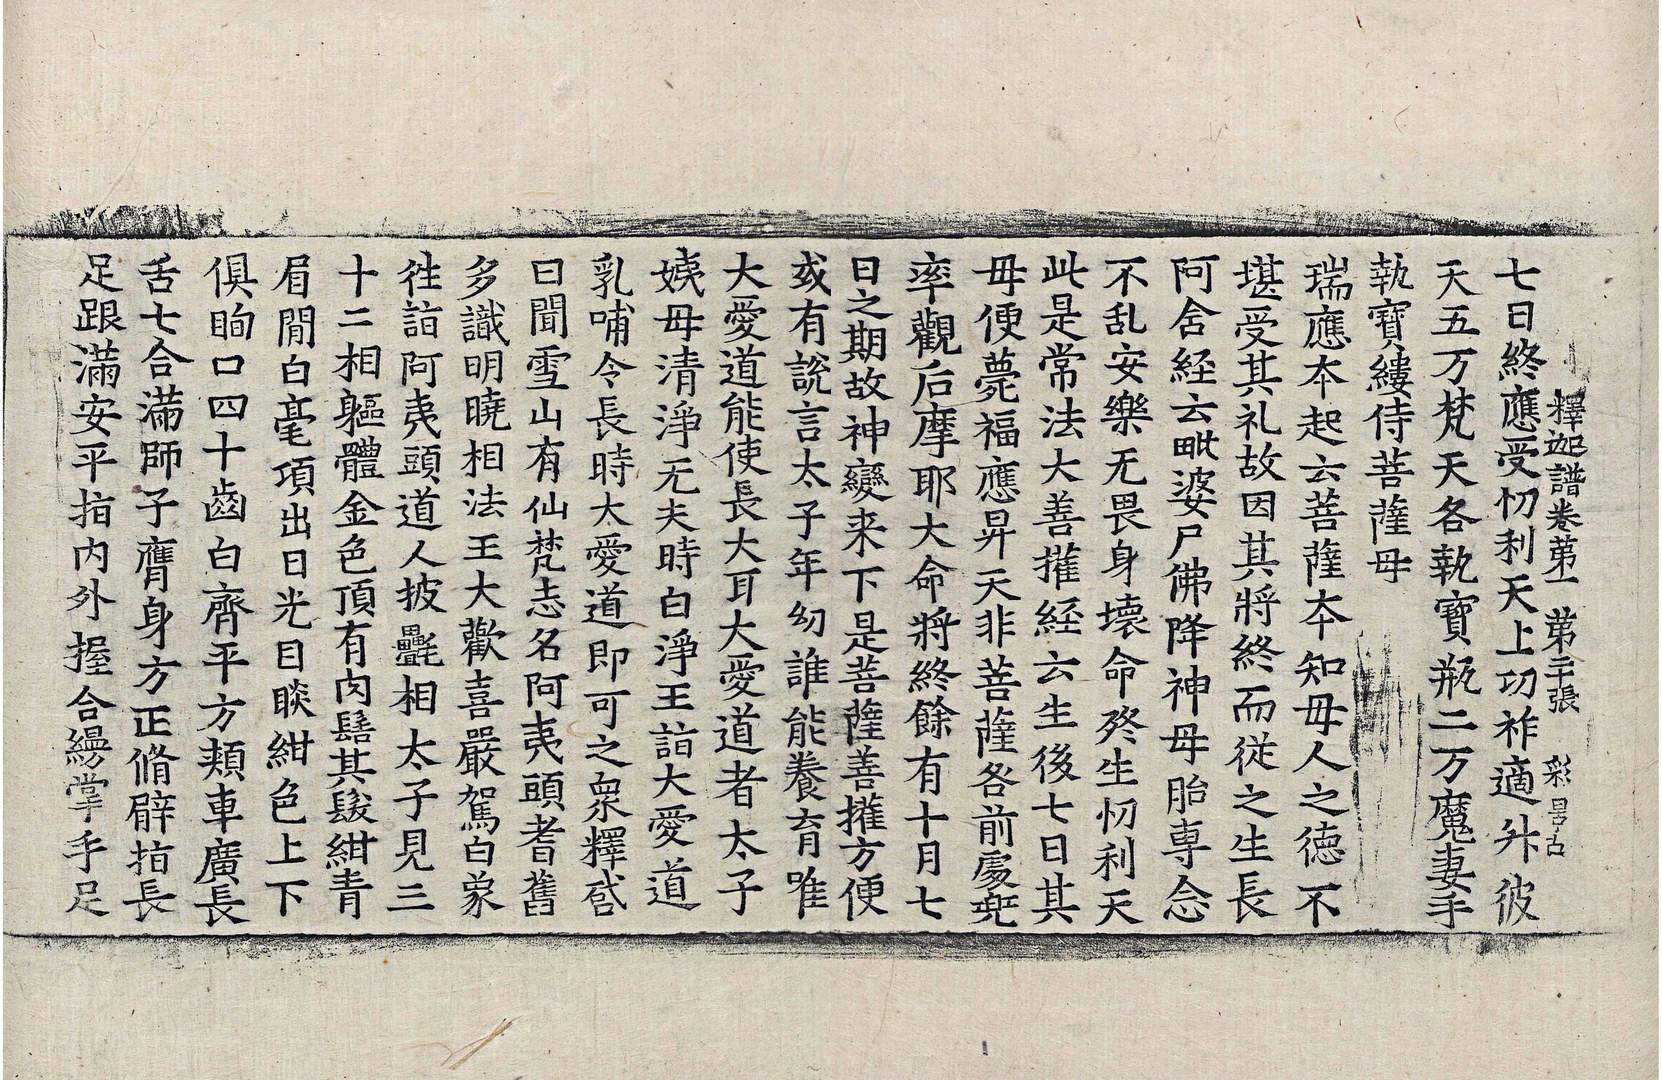 釋迦譜卷第一 第二十張 彩 另古
七日終應受忉利天上功祚適升彼
天五万梵天各執寶瓶二万魔妻手
執寶縷侍菩薩母
瑞應夲起云菩薩夲知母人之德不
堪受其礼故因其將終而從之生長
阿含経云毗婆尸佛降神母胎専念
不乱安樂无畏身壞命終生忉利天
此是常法大善攉経云生後七日其
母便薨福應昇天非菩薩咎前處兜
率觀后摩耶大命將終餘有十月七
日之期故神變来下是菩薩善攉方便
或有說言太子年㓜誰能養育唯
大愛道能使長大耳大愛道者太子
姨母清淨无夫時白淨王詣大愛道
乳哺令長時大愛道即可之衆釋啓
曰聞雪山有仙梵志名阿夷頭耆舊
多識明曉相法王大歡喜嚴駕白象
徃詣阿夷頭道人披㲲相太子見三
十二相軀體金色頂有肉髻其髮紺青
眉閒白毫項出日光目睒紺色上下
俱眴口四十齒白齊平方頰車廣長
舌七合滿師子膺身方正脩臂指長
足跟滿安平指内外握合縵掌手足